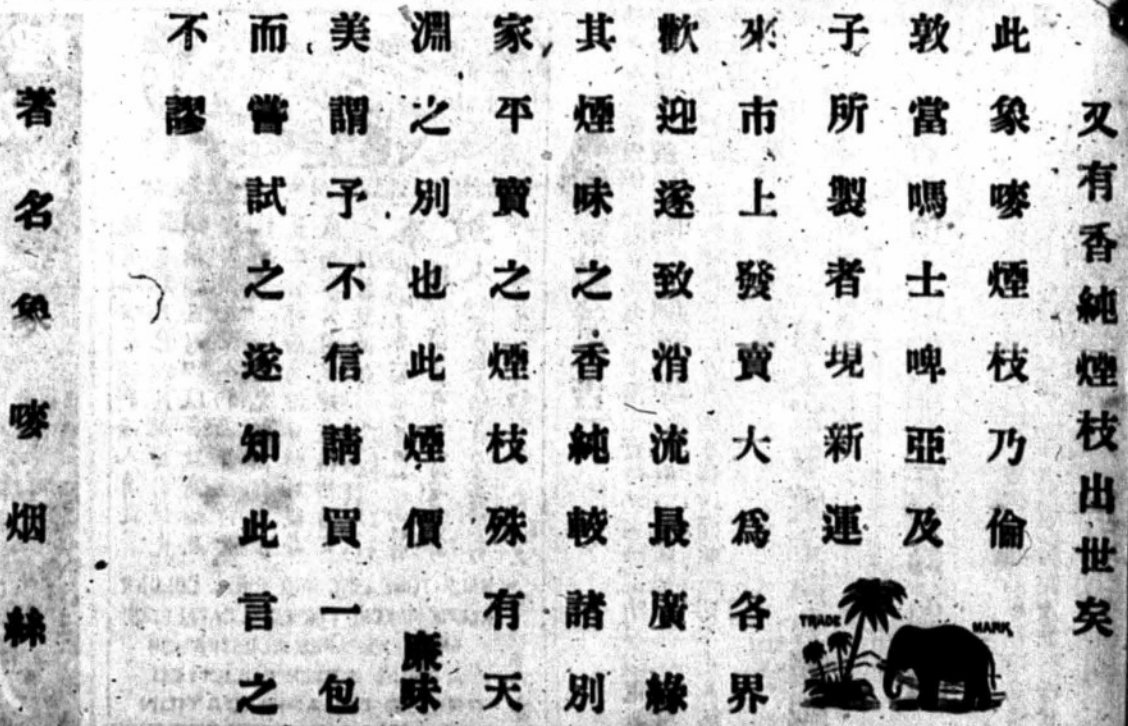 又有香純煙枝出世矣
此象嘜煙枝乃倫
敦當嗎士啤亞及
子所製者現新運
來市上發賣大為各界
歡迎遂致消流最廣緣
其煙味之香純較諸別
家平賣之煙枝殊有天
淵之別也此煙價廉味
美謂予不信請買一包
而嘗試之遂知此言之
不謬
著名象嘜烟絲
TRADE MARK